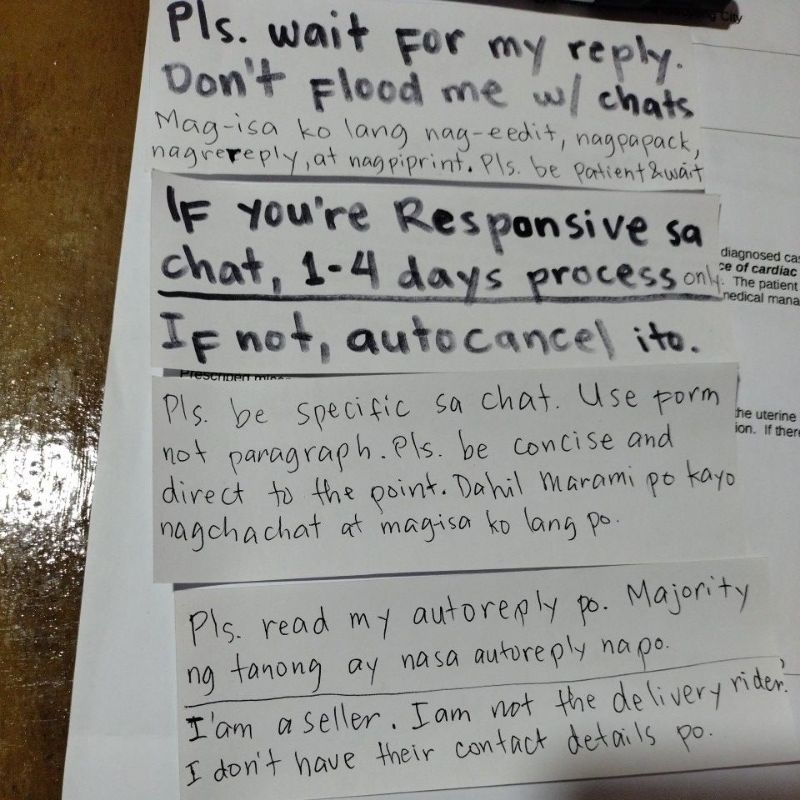 gyong City
Pls. wait For my reply.
Don't Flood me w/ chats
Mag-isa ko lang nag-eedit, nagpapack,
nagrereply, at nagpiprint. Pls. be patient & wait
IF you're Responsive sa
chat, 1-4 days process only.
IF not, autocancel ito.
diagnosed cas
ce of cardiac
. The patient
medical mana
Pls. be specific sa chat. Use form
not paragraph. Pls. be concise and
direct to the point. Dahil Marami po kayo
nagchachat at magisa ko lang po.
he uterine
ion. If there
Pls. read my autoreply po. Majority
ng tanong ay nasa autoreply na po.
I'am a seller. I am not the delivery rider.
I don't have their contact details po.